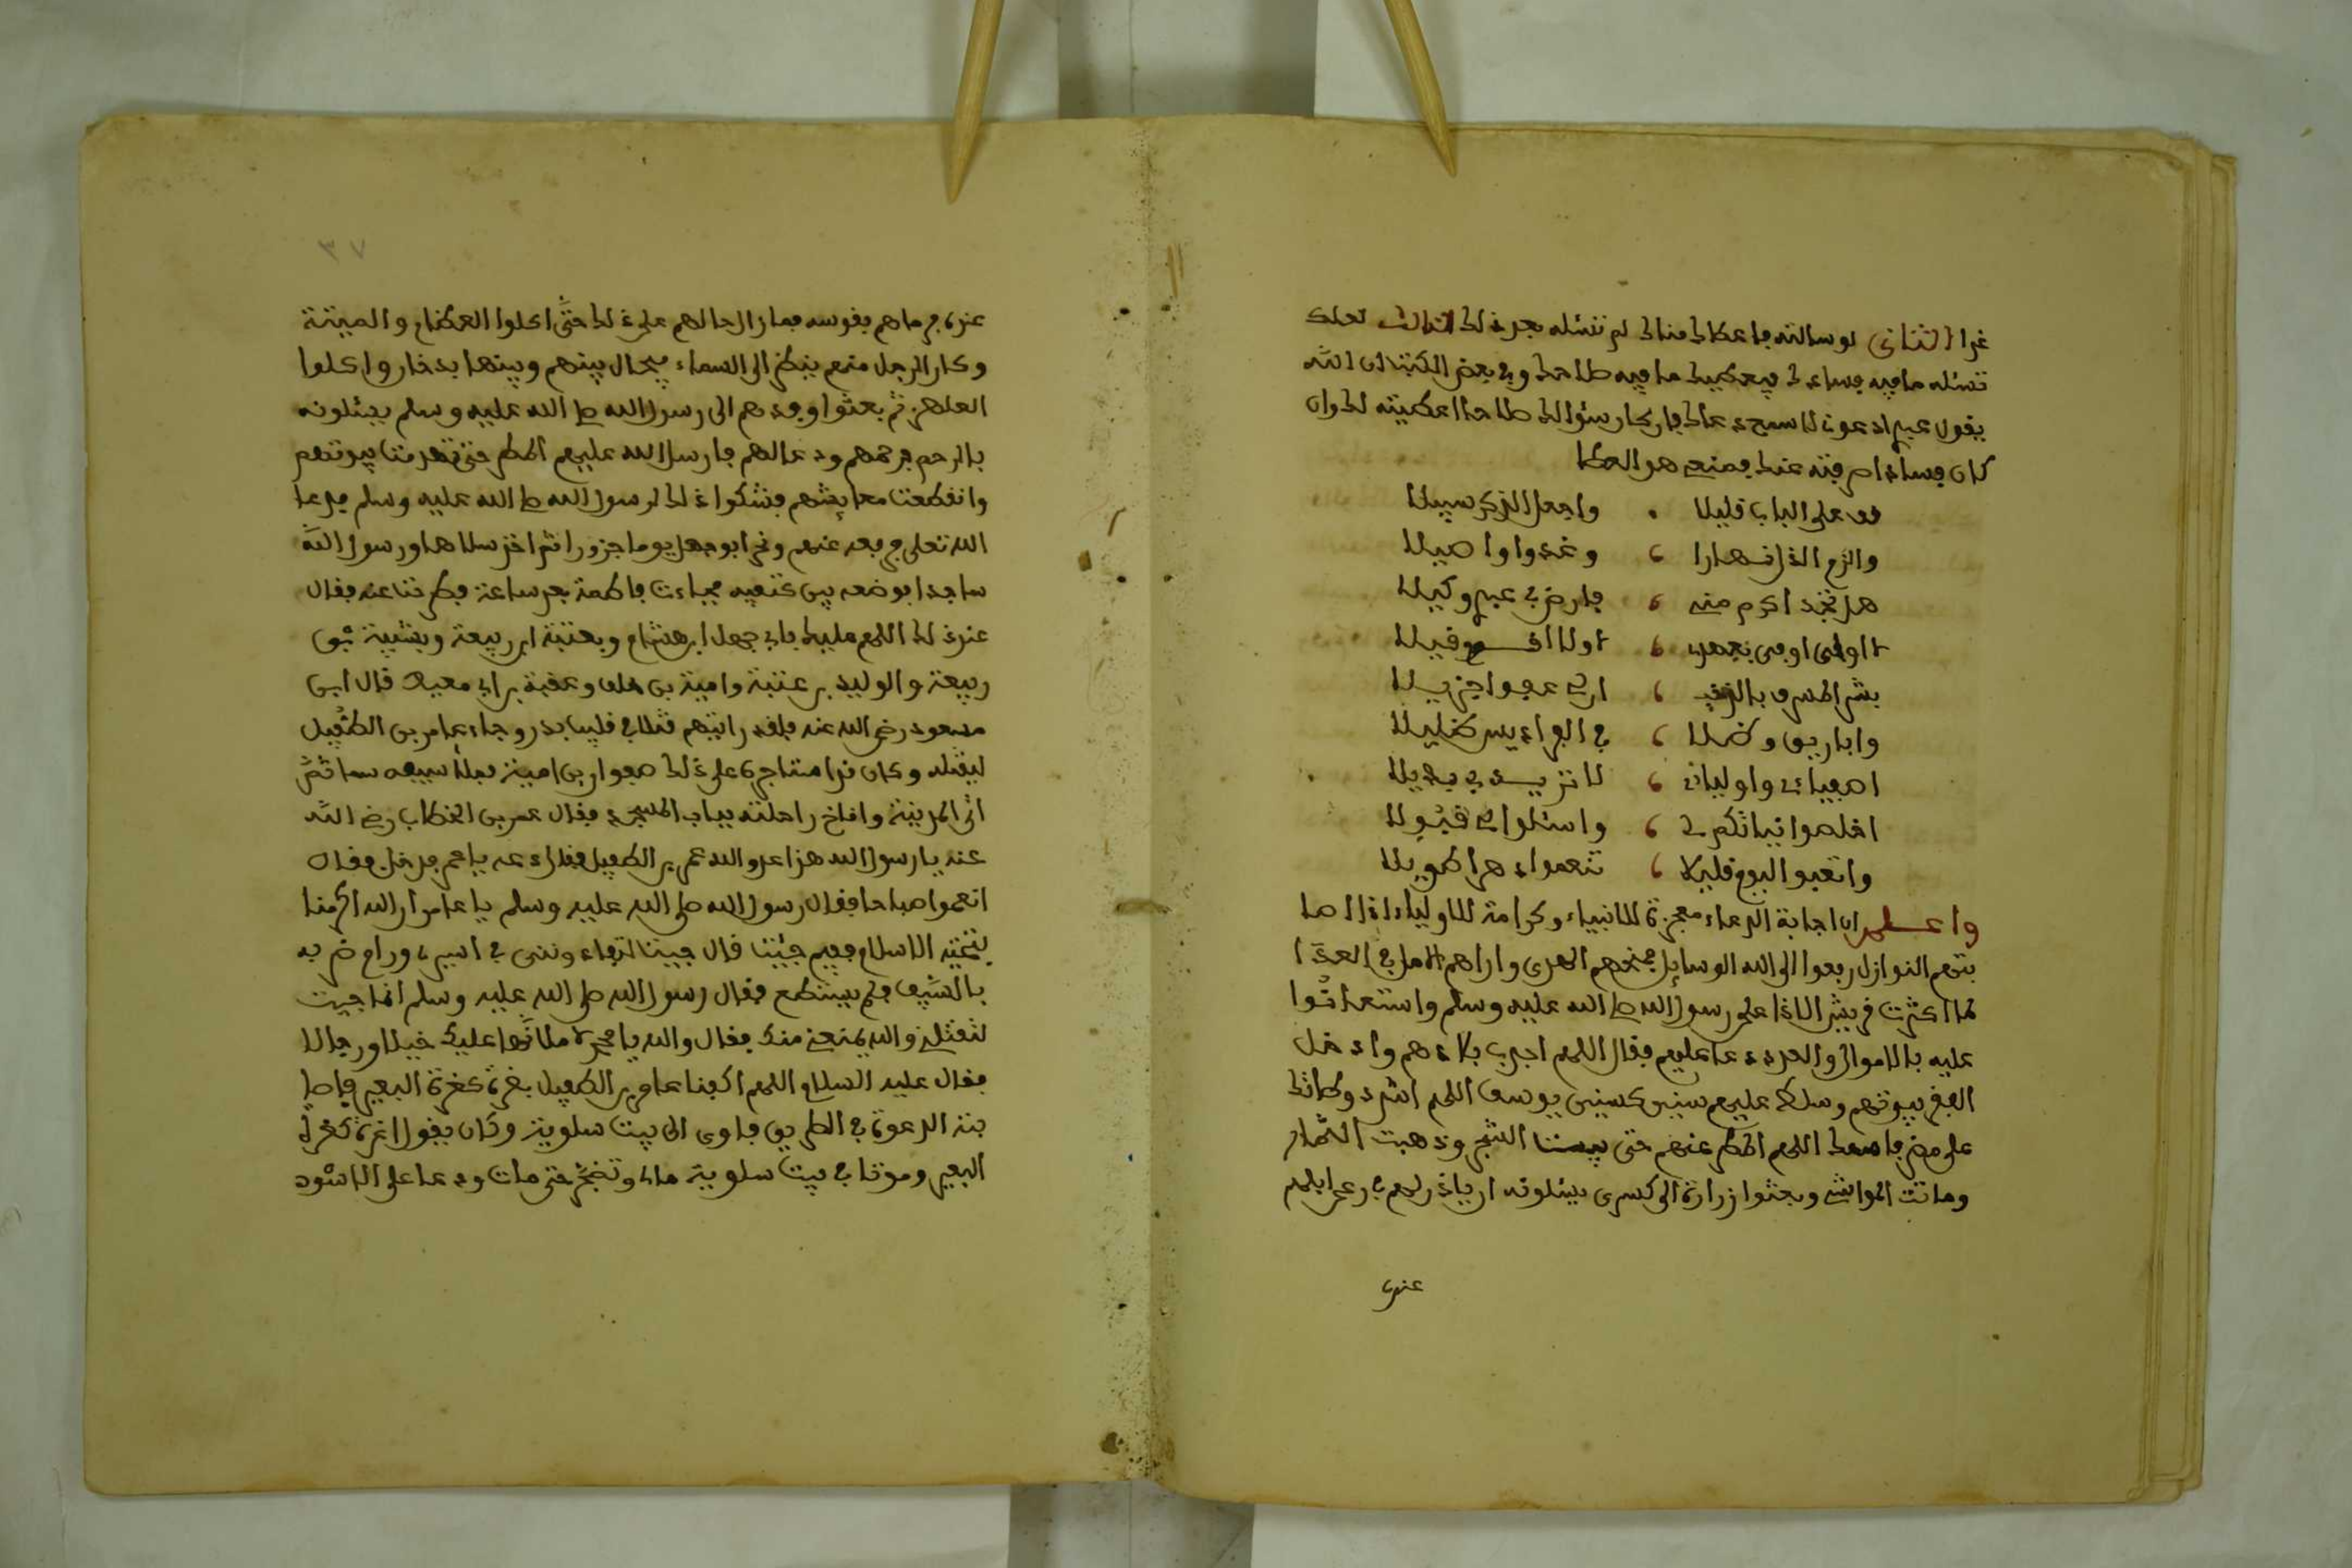 غدا الثاني لو سالته ما عطاك مناك لم تسئله بعد ذلك الثالث لعلك
تسئله ما فيه فسادك فيعطيك ما فيه صلاحك وفي بعض الكتب ان الله
يقول عبدي ادعوني لاسمع دعاك فان كان سؤالك صلاحا اعطيته لك وان
كان فسادا صرفته عنك فمنعي هو العطا
قف على الباب قليلا واجعل الذكر سبيلا
والزم الذل نهارا وغدوا واصيلا
هل تجد اكرم منه فارض بي عبدي وكيلا
اولى اوفى بعهدي اولا اقوم قيلا
بشر المسرف بالذنب ان لي عفوا جزيلا
واباريق وظلا في الفراديس ظليلا
اصفيائي واوليائي لا تريدوا بي بديلا
اخلصوا نياتكم لي واسئلوا لي قبولا
واتعبوا اليوم قليلا تنعموا دهرا طويلا
واعلم ان اجابة الدعاء معجزة للانبياء وكرامة للاولياء اذا اصا
بتهم النوازل رفعوا الى الله الوسايل فمنحهم الهدى واراهم الامل في العدا
لما اكثرت قريش الاذا على رسول الله صلى الله عليه وسلم واستعانوا
عليه بالاموال والعدد دعا عليهم فقال اللهم اجدب بلادهم وادخل
الفقر بيوتهم وسلط عليهم سنين كسني يوسف اللهم اشدد وطاتك
على مضر اللهم المطر عنهم حتى يبست الشجر وذهبت الثمار
وماتت المواشي وبعثوا زرارة الى كسرى يسئلونه ان ياذن لهم في رعي ابلهم
عنده
عنده فرماهم بقوسه فما زال حالهم على ذلك حتى اكلوا العظام والميتة
وكان الرجل منهم ينظر الى السماء فيحال بينهم وبينها بدخان واكلوا
العلهز ثم بعثوا وفدهم الى رسول الله صلى الله عليه وسلم يسئلونه
بالرحم فرحمهم ودعا لهم فارسل الله عليهم المطر حتى تهدمت بيوتهم
وانقطعت معايشهم فشكوا ذلك لرسول الله صلى الله عليه وسلم فدعا
الله تعالى فرفعه عنهم ونحر ابو جهل يوما جزورا ثم اخذ سلاها ورسول الله
ساجدا فوضعه بين كتفيه فجاءت فاطمة بعد ساعة فطرحتا عنه فقال
عند ذلك اللهم عليك بابي جهل ابن هشام وبعتبة ابن ربيعة وبشيبة بن
ربيعة والوليد بن عتبة وامية بن خلف وعقبة بن ابي معيط قال ابن
مسعود رضي الله عنه فلقد رايتهم قتلا في قليب بدر وجاء عامر بن الطفيل
ليقتله وكان على ذلك صفوان بن امية سيفه سما ثم
اتى المدينة واناخ راحلته بباب المسجد فقال عمر بن الخطاب رضي الله
عنه يا رسول الله هذا عدو الله عمر بن الطفيل فقال دعه يا عمر فدخل فقال
انعموا صباحا فقال رسول الله صلى الله عليه وسلم يا عامر ان الله اكرمنا
بتحية الاسلام ففيم جئتنا قال جيت لفداء ابني في اسيري وراح ضربه
بالسيف فلم يستطع فقال رسول الله صلى الله عليه وسلم انما جيت
لتقتلني والله يمنعني منك فقال والله يا محمد لاملانها عليك خيلا ورجالا
فقال عليه السلام اللهم اكفنا عامر بن الطفيل بغدة كغدة البعير فاصا
بته الدعوة في الطريق فاوى الى بيت سلولية وكان يقول اغدة كغدة
البعير وموتا في بيت سلولية مات وتفجر حتى مات ودعا على الاسود